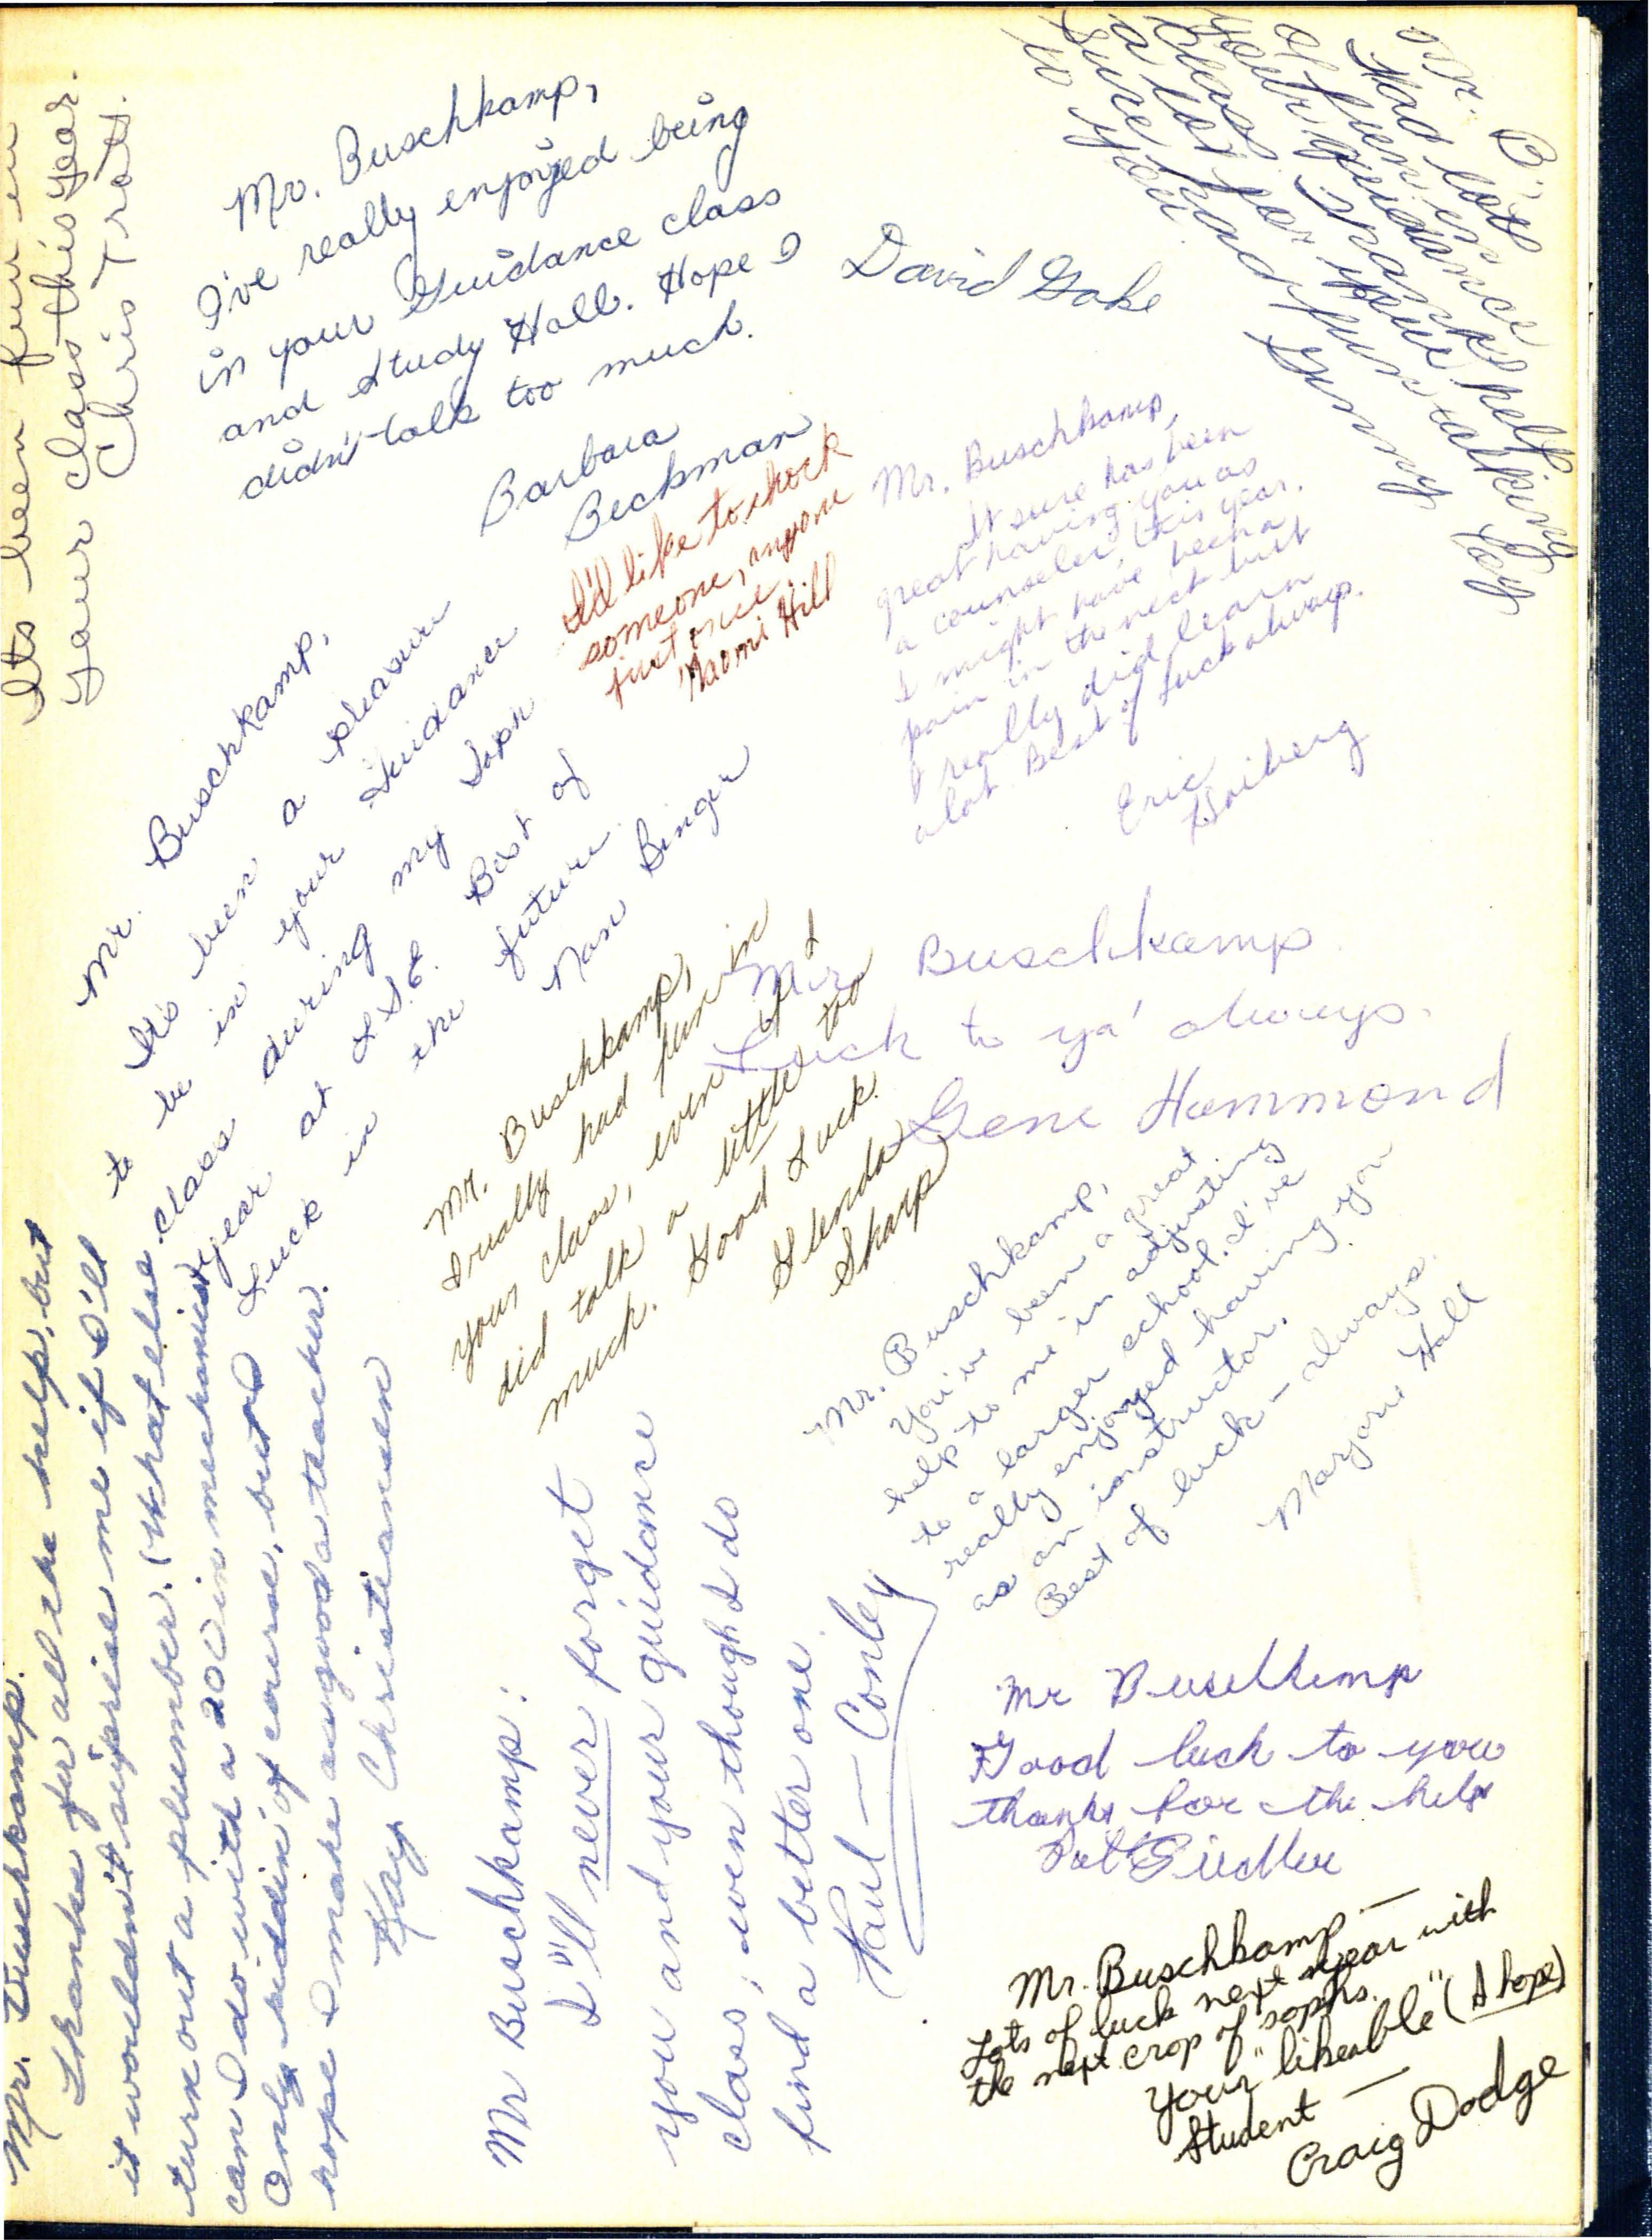 Its been fun in
your class this year.
Chris Trott.
Mr. Buschkamp,
I've really enjoyed being
in your Guidance class
and Study Hall. Hope I
didn't talk too much.
Barbara
Beckman
David Gake
Mr. B.,
Had lots
of fun in
your guidance
class. Thanks
a lot for your help
Sure find fun talking
to you
Ginny
I'd like to shock
someone, anyone
just once
Naomi Hill
Mr. Buschkamp,
It sure has been
great having you as
a counseler this year.
I might have been a
pain in the neck but
I really did learn
alot. Best of luck always.
Eric
Hoiberg
Mr. Buschkamp,
It's been a pleasure
to be in your Guidance
class during my Soph
year at Best of
Luck in the future.
Nan Binger
Mr. Buschkamp,
I really had fun in
your class, even if I
did talk a little too
much. Good Luck.
Glenda
Sharp
Mr Buschkamp.
Luck to ya' always.
Gene Hammond
Mr. Buschkamp,
You've been a great
help to me in adjusting
to a larger school. I've
really enjoyed having you
as an instructor.
Best of luck - always.
Marjorie Holt
Mr. Buschkamp.
Thanks for all the help, but
it wouldn't suprise me if I'll
turn out a plumber. (What else
can I do with a 20 in mechanics)
Only kiddin' of course, but I
hope I make as good a teacher.
Kay Christiansen
Mr Buschkamp:
I'll never forget
you and your guidance
class, even though I do
find a better one.
Paul — Conley
Mr
Good luck to you
thanks for the help
Pat
Mr. Buschkamp —
Lots of luck next year with
the next crop of sophs.
Your "likeable" (I hope)
Student —
Craig Dodge